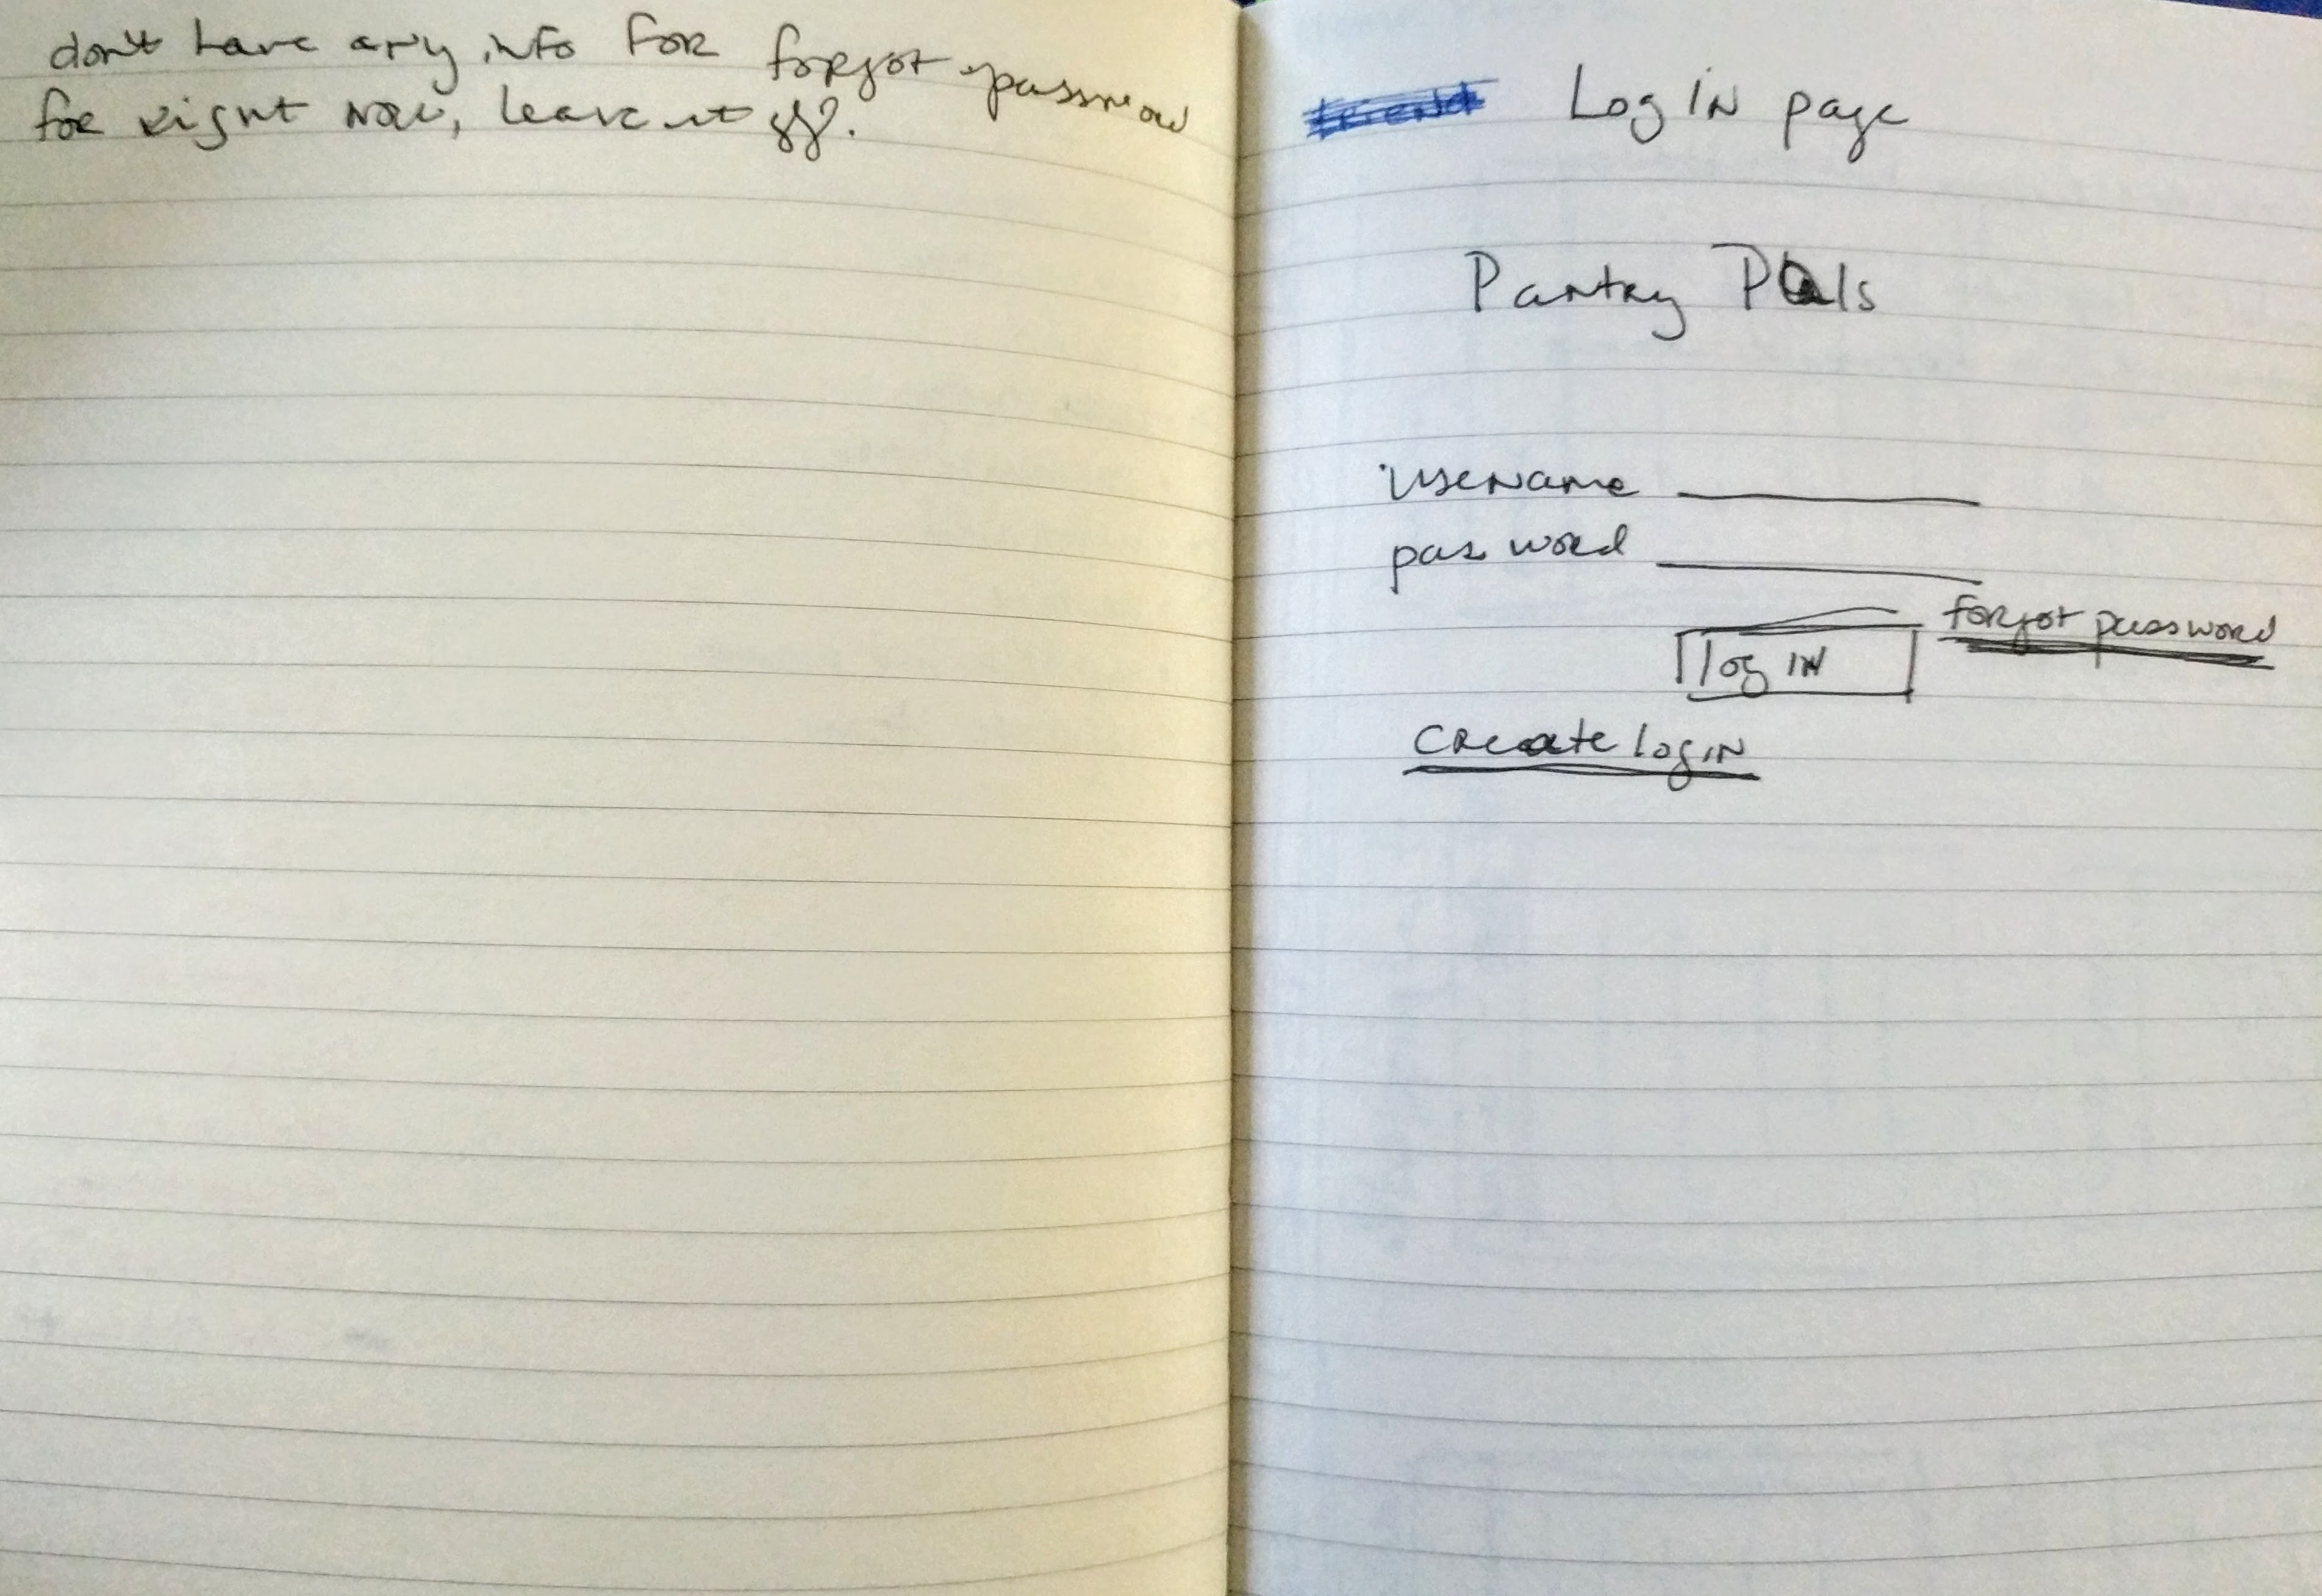 don't have any info for forgot password
for right now, leave it off.
friend Log IN page
Pantry Pals
username
password
forgot password
log IN
create login